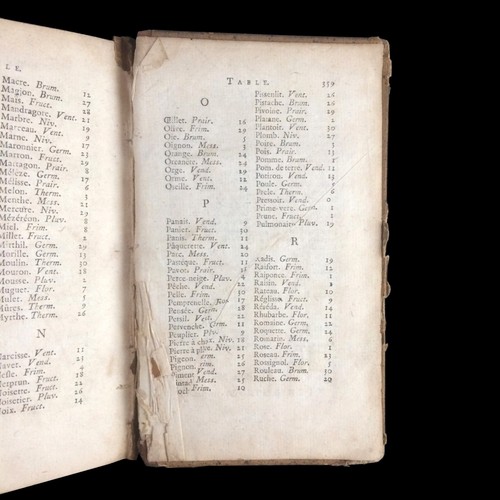 L E.
Macre. Brum. 12
Magjon. Brum. 27
Maïs. Fruct. 18
Mandragore. Vent. 21
Marbre. Niv. 19
Marceau. Vent. 9
Marne. Niv. 17
Maronnier. Germ. 23
Marron. Fruct. 19
Martagon. Prair. 8
Mélèze. Germ. 17
Mélisse. Prair. 6
Melon. Therm. 3
Menthe. Mess. 21
Mercure. Niv. 29
Mézéréon. Pluv. 8
Miel. Frim. 8
Millet. Fruct. 2
Mirthil. Germ. 29
Morille. Germ. 13
Moulin. Therm. 30
Mouron. Vent. 18
Mousse. Pluv. 2
Muguet. Flor. 7
Mulet. Mess. 5
Mûres. Therm. 9
Myrthe. Therm. 26
N
Narcisse. Vent. 11
Navet. Vend. 23
Nesle. Frim. 4
Nerprun. Fruct. 18
Noisette. Fruct. 22
Noisetier. Pluv. 26
Noix. Fruct. 14
TABLE. 359
O
Œillet. Prair. 16
Olive. Frim. 29
Oie. Brum. 5
Oignon. Mess. 3
Orange. Brum. 24
Orcanète. Mess. 24
Orge. Vend. 29
Orme. Vent. 12
Oseille. Frim. 24
P
Panais. Vend. 9
Panier. Fruct. 30
Panis. Therm. 11
Pâquerette. Vent. 24
Parc. Mess. 20
Pastèque. Fruct. 11
Pavot. Prair. 18
Perce-neige. Pluv. 4
Pêche. Vend. 22
Pelle. Frim. 30
Pemprenelle. 17
Pensée. Germ. 18
Persil. Vent. 22
Pervenche. Germ. 11
Peuplier. Plv. 9
Pierre à chax. Niv. 18
Pierre à plâtre. Niv. 21
Pigeon. erm. 25
Pignon. rim. 26
Piment Vend. 27
Mess. 25
Frim. 19
Pissenlit. Vent. 26
Pistache. Brum. 26
Pivoine. Prair. 29
Platane. Germ. 2
Plantoir. Vent. 30
Plomb. Niv. 27
Poire. Brum. 3
Pois. Prair. 13
Pomme. Brum. 1
Pom. de terre. Vend. 11
Potiron. Vend. 13
Poule. Germ. 9
Prèle. Therm. 6
Pressoir. Vend. 0
Prime-vere. Germ. 1
Prune. Fruct. 1
Pulmonaire. Pluv. 29
R
Radis. Germ. 19
Raifort. Frim. 12
Raiponce. Frim. 1
Raisin. Vend. 1
Rateau. Flor. 10
Réglisse. Fruct. 9
Réséda. Vend. 14
Rhubarbe. Flor. 11
Romaine. Germ. 22
Roquette. Germ. 24
Romarin. Mess. 6
Rose. Flor. 1
Roseau. Frim. 23
Rossignol. Flor. 5
Rouleau. Brum. 30
Ruche. Germ. 20